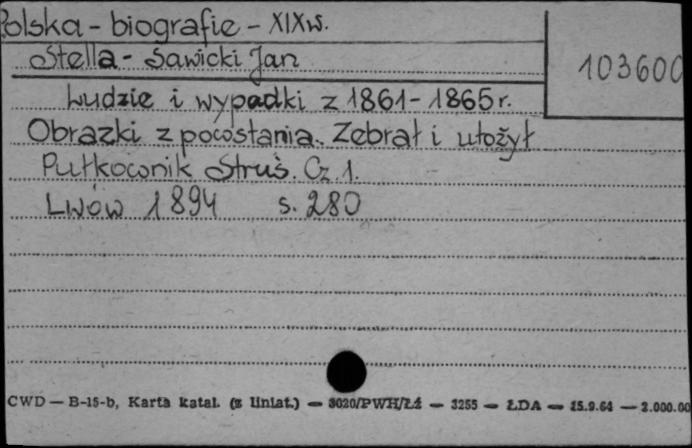 Polska - biografie - XIXw.
Stella - Sawicki Jan
103600
Ludzie i wypadki z 1861-1865 r.
Obrazki z powstania. Zebrał i ułożył
Pułkownik Struś. Cz. 1.
Lwów 1894 s. 280
CWD — B-15-b, Karta katal. (z liniat.) — 3020/PWH/Łż — 3255 — ŁDA — 15.9.64 — 2.000.00